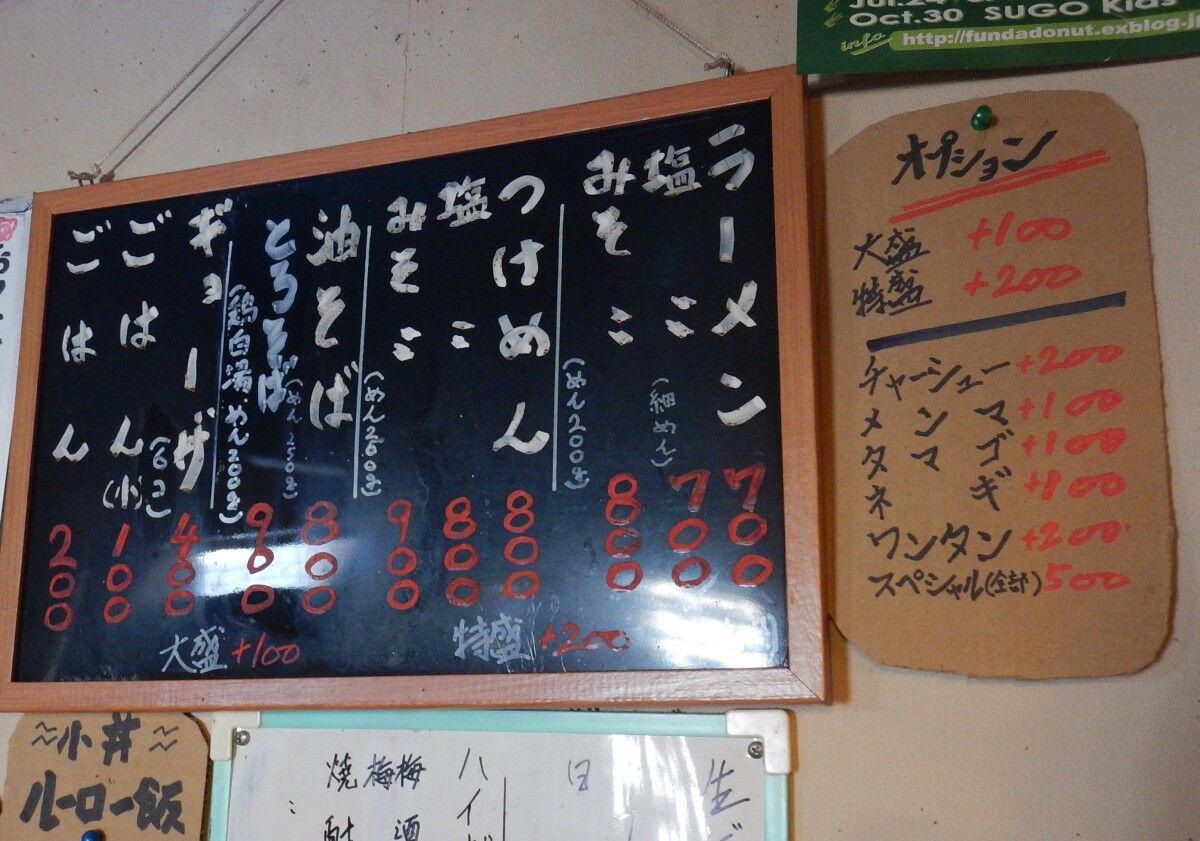 Oct.30 SUGO Kids
info http://fundadonut.exblog.j
ラーメン 700
塩〃 (細めん) 700
みそ〃 (めん200g) 800
つけめん 800
塩〃 800
みそ〃 (めん250g) 900
油そば 800
とろそば (めん250g) 900
(鶏白湯.めん200g)
ギョーザ (6コ) 400
ごはん(小) 100
ごはん 200
大盛 +100
特盛 +200
オプション
大盛 +100
特盛 +200
チャーシュー +200
メンマ +100
タマゴ +100
ネギ +100
ワンタン +200
スペシャル(全部) 500
小丼
ルーロー飯
生
日
ハイ
梅酒
梅
焼酎